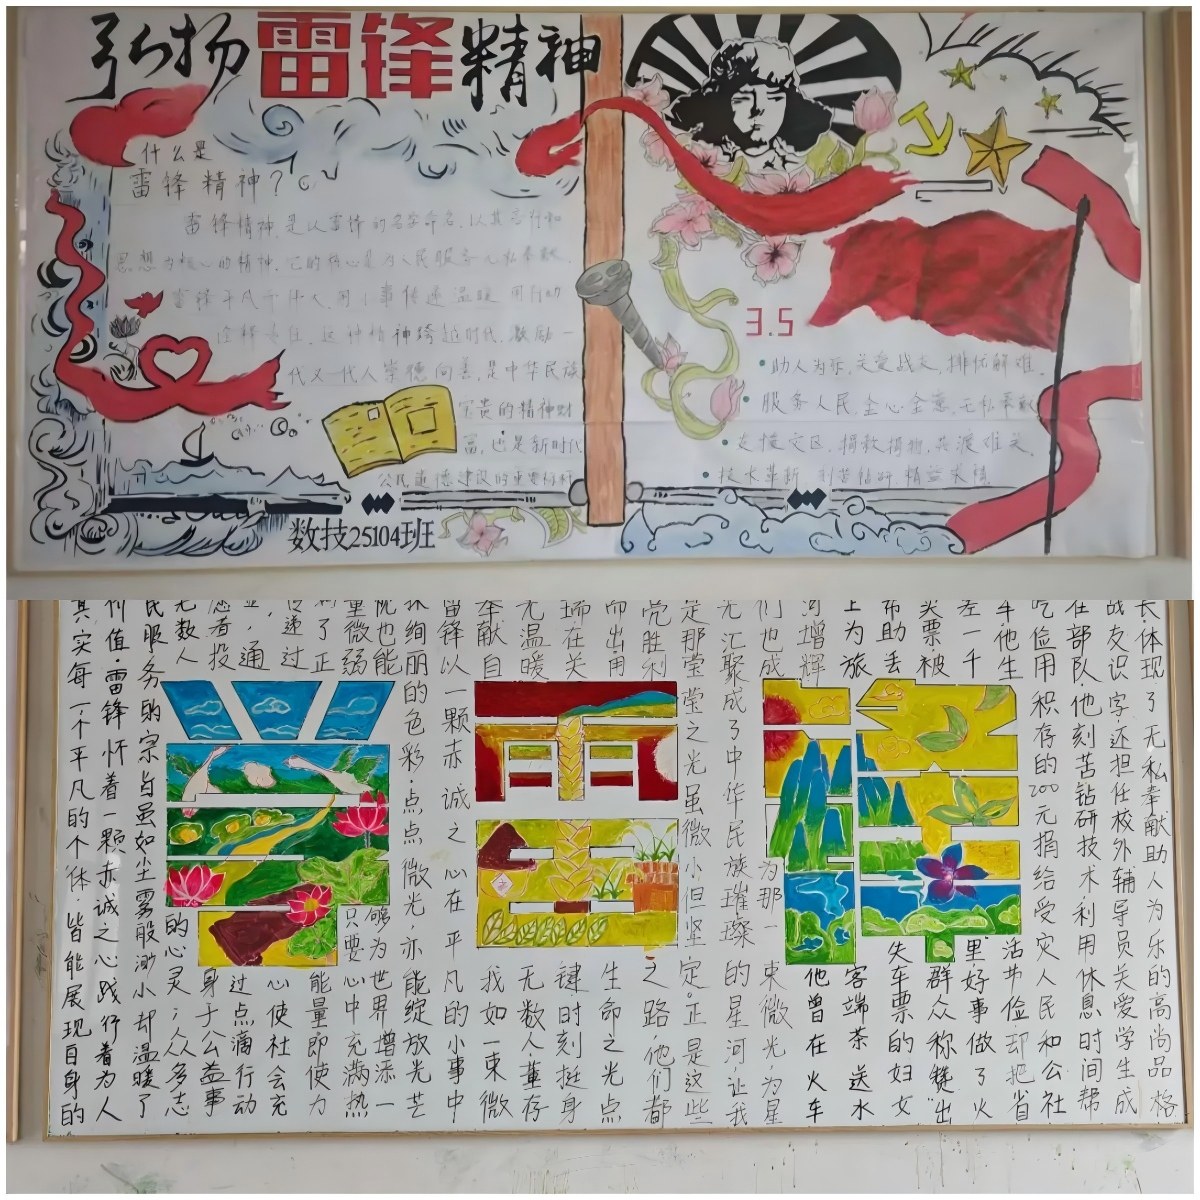 弘扬雷锋精神
什么是
雷锋精神？
雷锋精神，是以雷锋的名字命名，以其言行和
思想为核心的精神，它的核心是为人民服务无私奉献、
雷锋平凡而伟大，用小事传递温暖，用行动
诠释责任，这种精神跨越时代，激励一
代又一代人崇德向善，是中华民族
宝贵的精神财
富，也是新时代
公民道德建设的重要标杆
3.5
助人为乐，关爱战友，排忧解难。
服务人民，全心全意，无私奉献
支援灾区，捐款捐物，共渡难关。
技术革新，刻苦钻研，精益求精
数技25104班
长，体现了无私奉献助人为乐的高尚品格
战友识字，还担任校外辅导员关爱学生成
在部队他刻苦钻研技术，利用休息时间帮
吃俭用积存的200元捐给受灾人民和公社
车他生活节俭却把省
差一千里好事做了火
票被群众称赞“出
助丢失车票的妇女
上为旅客端茶送水
河增辉他曾在火车
们也成为那一束微光，为星
汇聚成了中华民族璀璨的星河，让我
是那堂堂之光虽微小但坚定。正是这些
亮胜利之路，他们都
而出用生命之光点
瑞在关键时刻挺身
温暖无数人，董存
奉献自我如一束微
雷锋以一颗赤诚之心在平凡的小事中
绚丽的色彩点点微光，亦能绽放光芒
也能够为世界增添一
量微弱只要心中充满热
了正能量即使力
递过心使社会充
业，通过点滴行动
愿者投身于公益事
无数人的心灵；众多志
民服务的宗旨虽如尘雾般渺小却温暖了
价值。雷锋怀着一颗赤诚之心践行着为人
其实每一个平凡的个体，皆能展现自身的
学雷锋